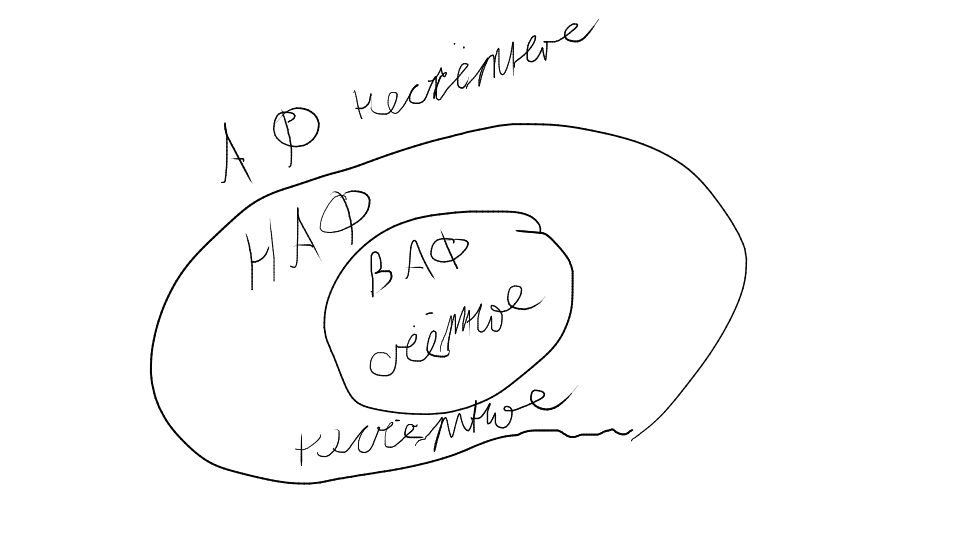 АФ несчётное
НАФ
ВАФ
счётное
несчётное